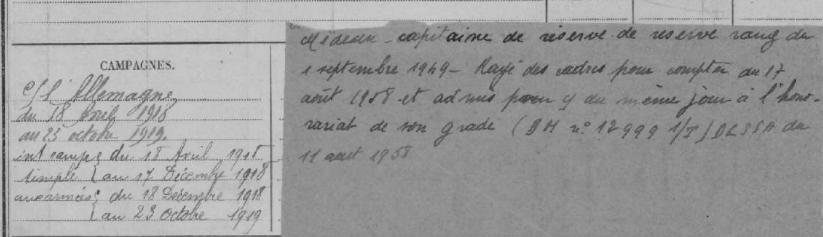 CAMPAGNES.
C/ l'Allemagne
du 18 avril 1918
au 23 octobre 1919.
int camp du 18 Avril 1918
simple { au 17 Décembre 1918
aux armées { du 18 Décembre 1918
{ au 23 Octobre 1919
Médecin - capitaine de réserve de reserve rang du
1 septembre 1949 - Rayé des cadres pour compter du 17
août 1958 et admis pour y du même jour à l'hono-
rariat de son grade (DM n° 12999 1/T) DLSSA du
11 aout 1958